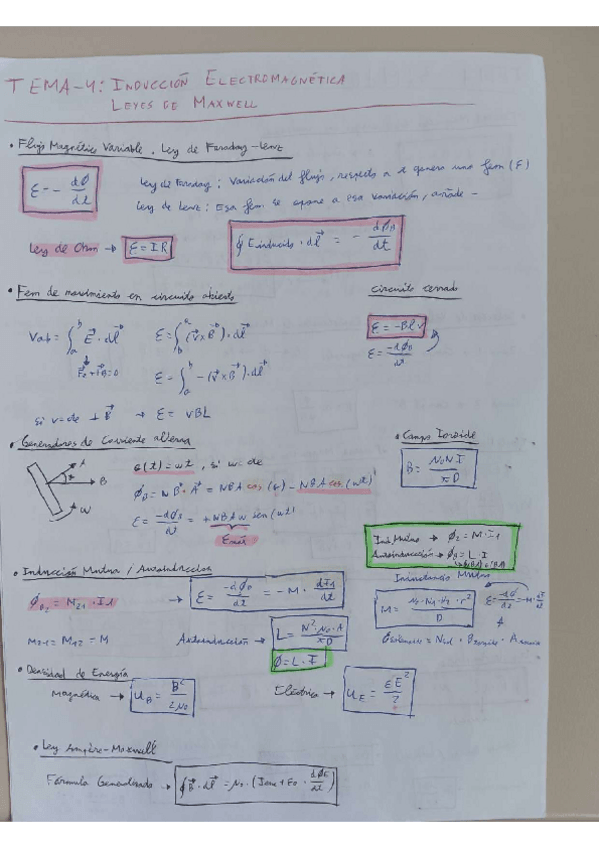 TEMA-4: INDUCCIÓN ELECTROMAGNÉTICA
LEYES DE MAXWELL
• Flujo Magnético Variable. Ley de Faraday-Lenz
ε = - dϕ/dt
Ley de Faraday: Variación del flujo, respecto a t genera una fem (ε)
Ley de Lenz: Esa fem se opone a esa variación, añade -
Ley de Ohm → ε = IR
∮ E inducido · dl = - dϕB/dt
• Fem de movimiento en circuito abierto
circuito cerrado
Vab = ∫ E · dl
ε = ∫ (v x B) · dl
ε = -Blv
ε = -dϕB/dt
ε = ∫ -(v x B) · dl
si v= de ⊥ B → ε = vBL
• Generadores de Corriente alterna
• Campo Toroide
A
B
W
(t) = wt, si w: de
ϕB = N B · A = NBA cos = NBA cos (wt)
ε = -dϕB/dt = + NBA w sen (wt)
Emáx
B = N0 N I / πD
Ind. Mutua → ϕ2 = M · I1
Autoinducción → ϕ = L · I
• Inducción Mutua / Autoinducción
Inductancia Mutua
ϕB2 = M21 · I1
→ ε = -dϕB/dt = - M · dI1/dt
M = N0 · N1 · N2 · r² / D
M21 = M12 = M
Autoinducción → L = N² · N0 · A / πD
ϕ = L · I
• Densidad de Energía
Magnética → uB = B² / 2N0
Eléctrica → uE = εE² / 2
• Ley Ampère-Maxwell
Fórmula Generalizada → ∮ B · dl = N0 · (